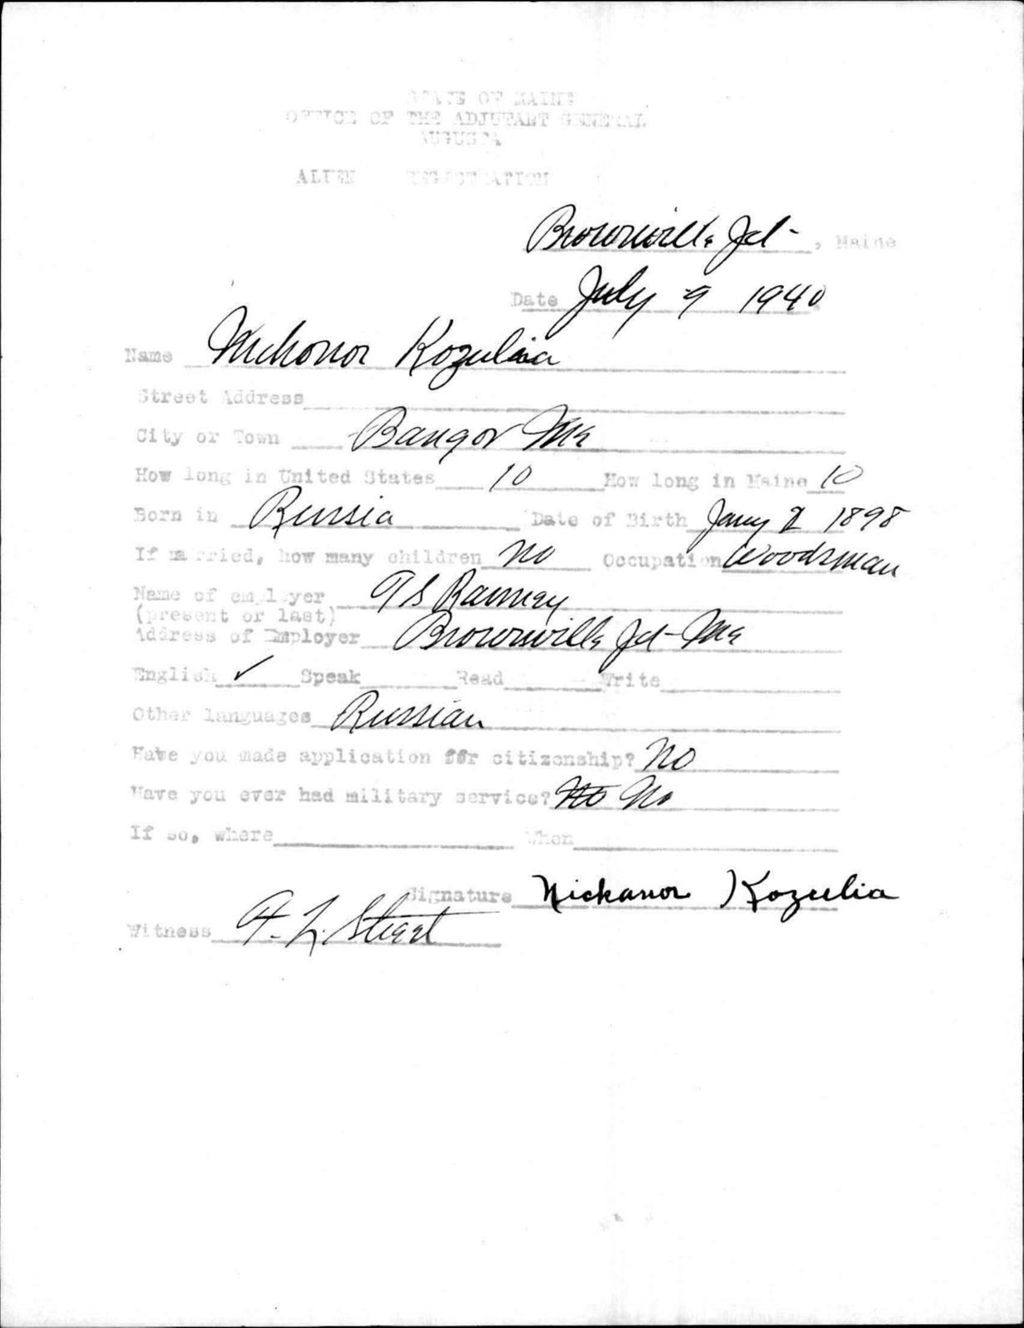 STATE OF MAINE
OFFICE OF THE ADJUTANT GENERAL
AUGUSTA
ALIEN REGISTRATION
Brownville Jct - , Maine
Date July 9 1940
Name Nickonor Kozulia
Street Address
City or Town Bangor Me
How long in United States 10 How long in Maine 10
Born in Russia Date of Birth Jany 2 1898
If married, how many children No Occupation Woodsman
Name of employer Ranney
(present or last)
Address of Employer Brownville Jct - Me
English ✓ Speak Read Write
Other languages Russian
Have you made application for citizenship? No
Have you ever had military service? No No
If so, where When
Signature Nickanor Kozulia
Witness